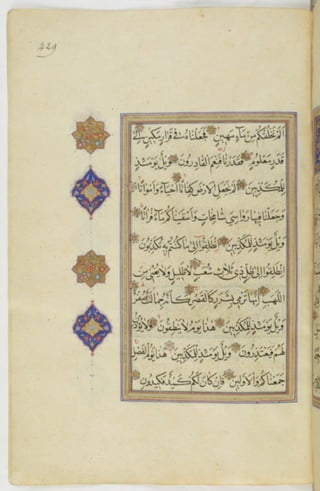 429
اَلَمْ نَخْلُقْكُمْ مِنْ مَاءٍ مَهِينٍ فَجَعَلْنَاهُ فِي قَرَارٍ مَكِينٍ اِلٰى
قَدَرٍ مَعْلُومٍ فَقَدَرْنَا فَنِعْمَ الْقَادِرُونَ وَيْلٌ يَوْمَئِذٍ
لِلْمُكَذِّبِينَ اَلَمْ نَجْعَلِ الْاَرْضَ كِفَاتًا اَحْيَاءً وَاَمْوَاتًا
وَجَعَلْنَا فِيهَا رَوَاسِيَ شَامِخَاتٍ وَاَسْقَيْنَاكُمْ مَاءً فُرَاتًا
وَيْلٌ يَوْمَئِذٍ لِلْمُكَذِّبِينَ اِنْطَلِقُوا اِلٰى مَا كُنْتُمْ بِهِ تُكَذِّبُونَ
اِنْطَلِقُوا اِلٰى ظِلٍّ ذِي ثَلَاثِ شُعَبٍ لَا ظَلِيلٍ وَلَا يُغْنِي مِنَ
اللَّهَبِ اِنَّهَا تَرْمِي بِشَرَرٍ كَالْقَصْرِ كَاَنَّهُ جِمَالَتٌ صُفْرٌ
وَيْلٌ يَوْمَئِذٍ لِلْمُكَذِّبِينَ هٰذَا يَوْمُ لَا يَنْطِقُونَ وَلَا يُؤْذَنُ
لَهُمْ فَيَعْتَذِرُونَ وَيْلٌ يَوْمَئِذٍ لِلْمُكَذِّبِينَ هٰذَا يَوْمُ الْفَصْلِ
جَمَعْنَاكُمْ وَالْاَوَّلِينَ فَاِنْ كَانَ لَكُمْ كَيْدٌ فَكِيدُونِ